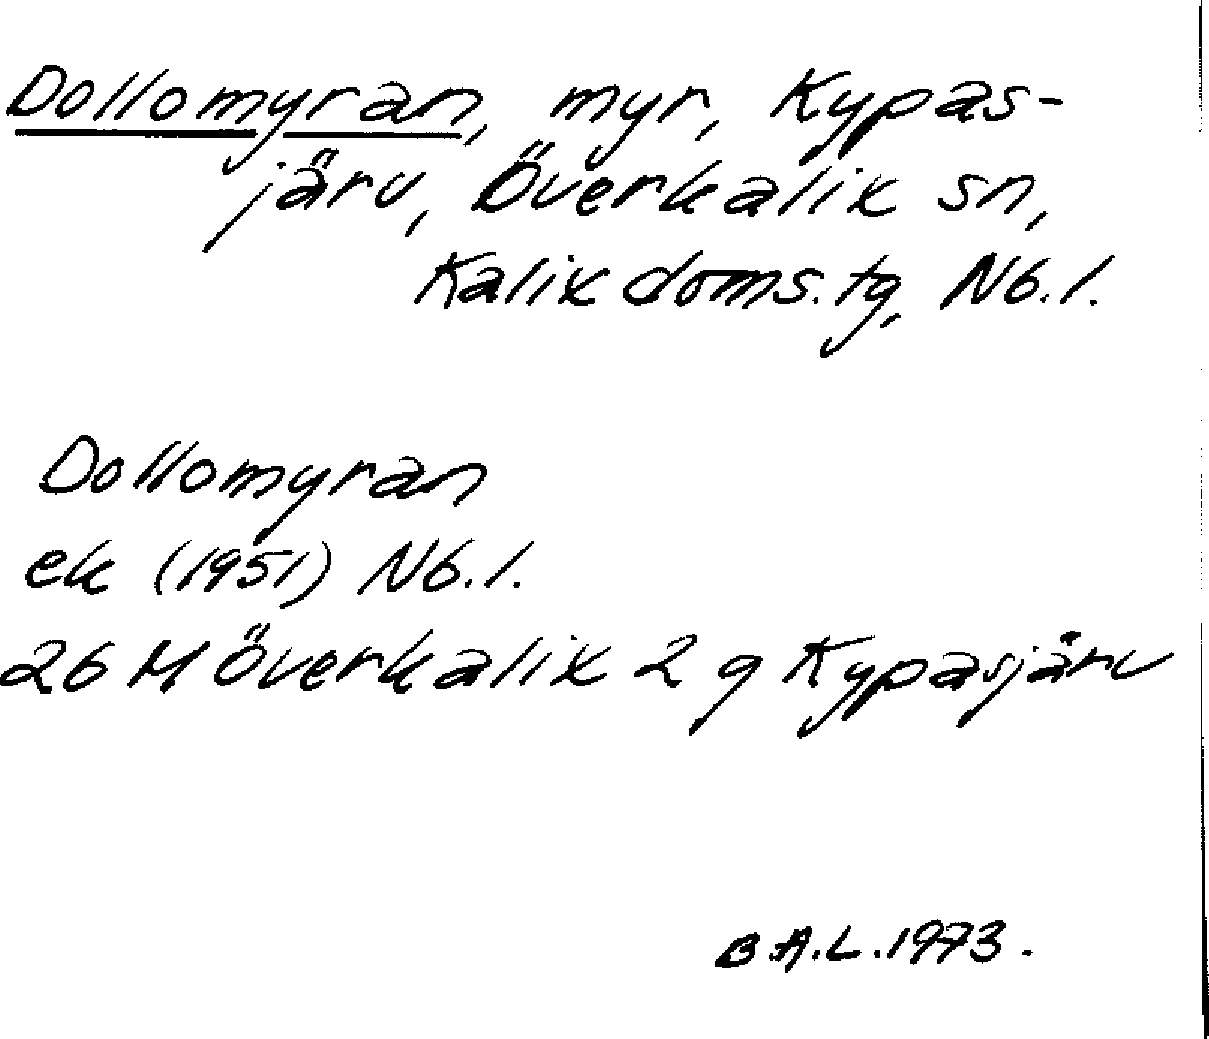 Dollomyran, myr, Kypas-
järv, Överkalix sn,
Kalix doms. tg, Nb. l.
Dollomyran
ek (1951) Nb. l.
26 M Överkalix 2 g Kypasjärv
B.A.L. 1973.